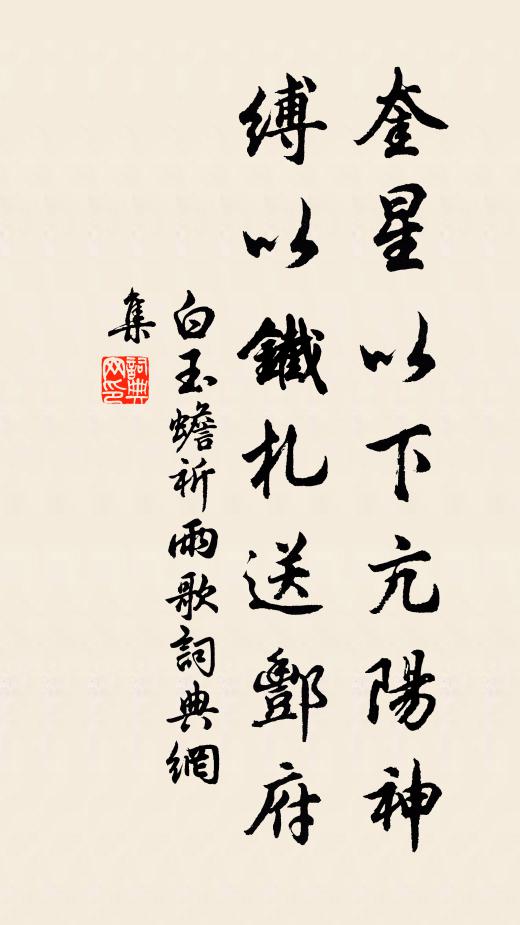 奎星以下亢陽神
縛以鐵札送酆府
白玉蟾祈雨歌詞典網
集
詞典網印